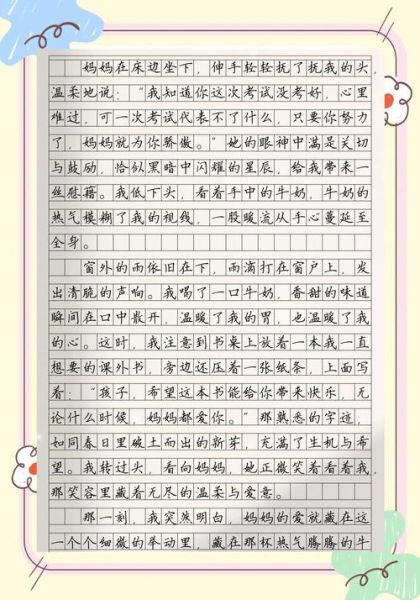 妈妈在床边坐下，伸手轻轻抚了抚我的头，
温柔地说：“我知道你这次考试没考好，心里
难过，可一次考试代表不了什么，只要你努力
了，妈妈就为你骄傲。”她的眼神中满是关切
与鼓励，恰似黑暗中闪耀的星辰，给我带来一
丝慰藉。我低下头，看着手中的牛奶，牛奶的
热气模糊了我的视线，一股暖流从手心蔓延至
全身。
窗外的雨依旧在下，雨滴打在窗户上，发
出清脆的声响。我喝了一口牛奶，香甜的味道
瞬间在口中散开，温暖了我的胃，也温暖了我
的心。这时，我注意到书桌上放着一本我一直
想要的课外书，旁边还压着一张纸条，上面写
着：“孩子，希望这本书能给你带来快乐，无
论什么时候，妈妈都爱你。”那熟悉的字迹，
如同春日里破土而出的新芽，充满了生机与希
望。我转过头，看向妈妈，她正微笑着看着我，
那笑容里藏着无尽的温柔与爱意。
那一刻，我突然明白，妈妈的爱就藏在这
一个个细微的举动里，藏在那杯热气腾腾的牛